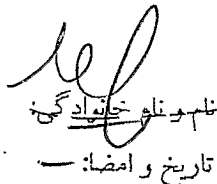 نام و نام خانوادگی:
تاریخ و امضا: —